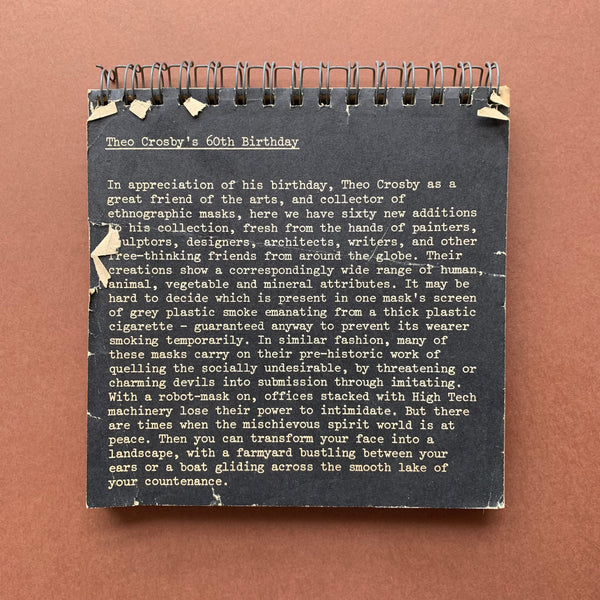 Theo Crosby's 60th Birthday
In appreciation of his birthday, Theo Crosby as a
great friend of the arts, and collector of
ethnographic masks, here we have sixty new additions
to his collection, fresh from the hands of painters,
sculptors, designers, architects, writers, and other
free-thinking friends from around the globe. Their
creations show a correspondingly wide range of human,
animal, vegetable and mineral attributes. It may be
hard to decide which is present in one mask's screen
of grey plastic smoke emanating from a thick plastic
cigarette - guaranteed anyway to prevent its wearer
smoking temporarily. In similar fashion, many of
these masks carry on their pre-historic work of
quelling the socially undesirable, by threatening or
charming devils into submission through imitating.
With a robot-mask on, offices stacked with High Tech
machinery lose their power to intimidate. But there
are times when the mischievous spirit world is at
peace. Then you can transform your face into a
landscape, with a farmyard bustling between your
ears or a boat gliding across the smooth lake of
your countenance.